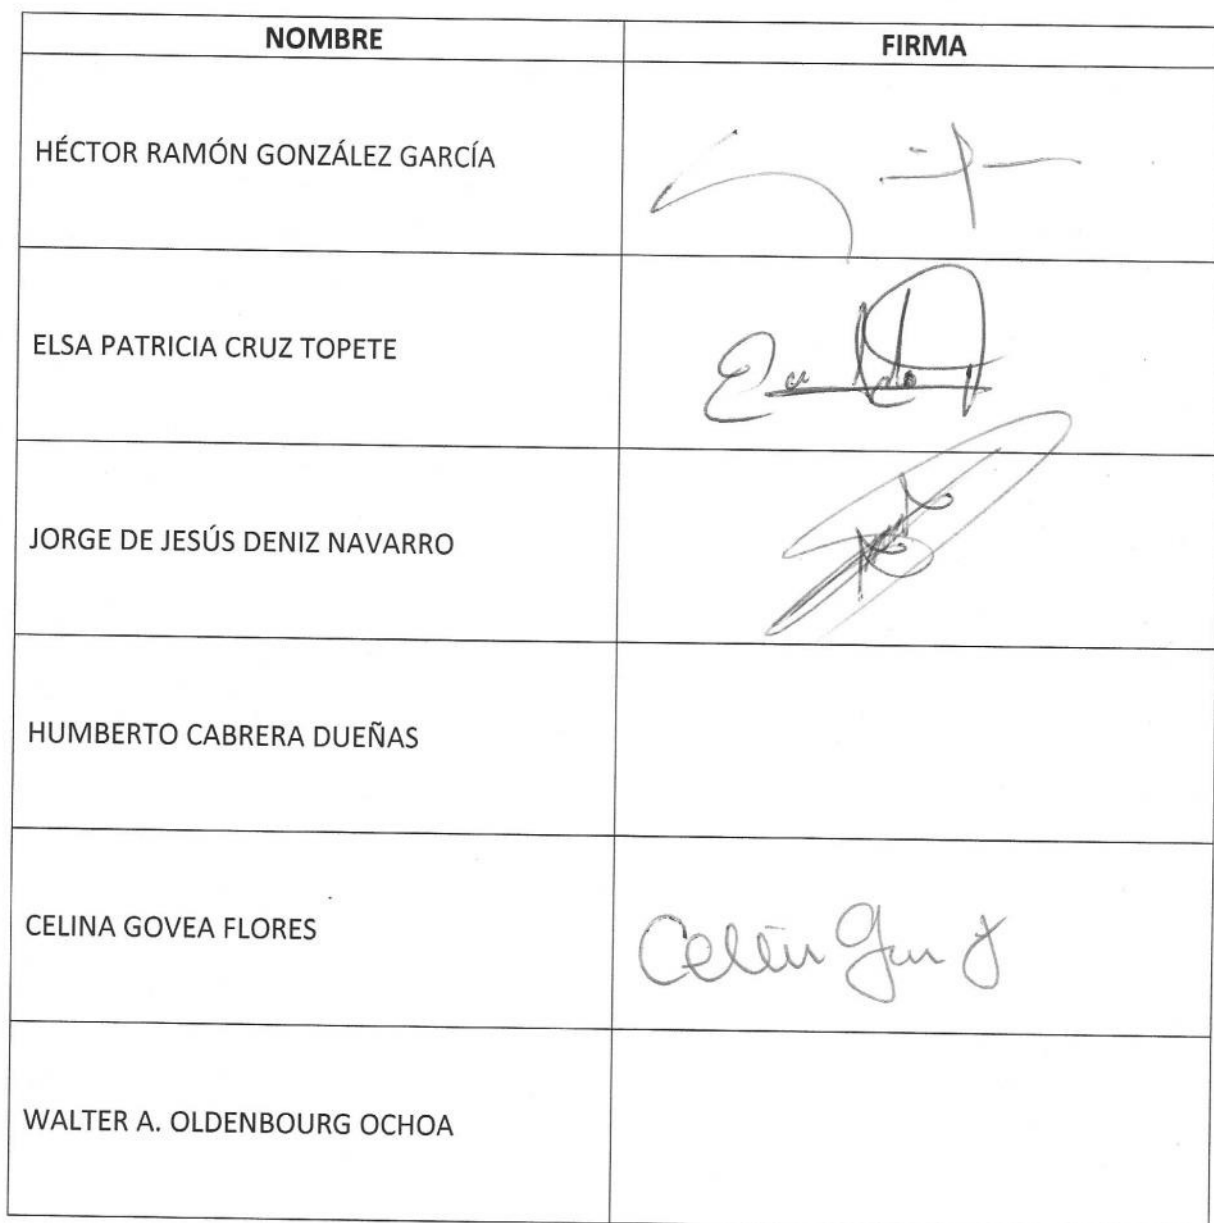 NOMBRE FIRMA
HÉCTOR RAMÓN GONZÁLEZ GARCÍA
ELSA PATRICIA CRUZ TOPETE
JORGE DE JESÚS DENIZ NAVARRO
HUMBERTO CABRERA DUEÑAS
CELINA GOVEA FLORES
WALTER A. OLDENBOURG OCHOA